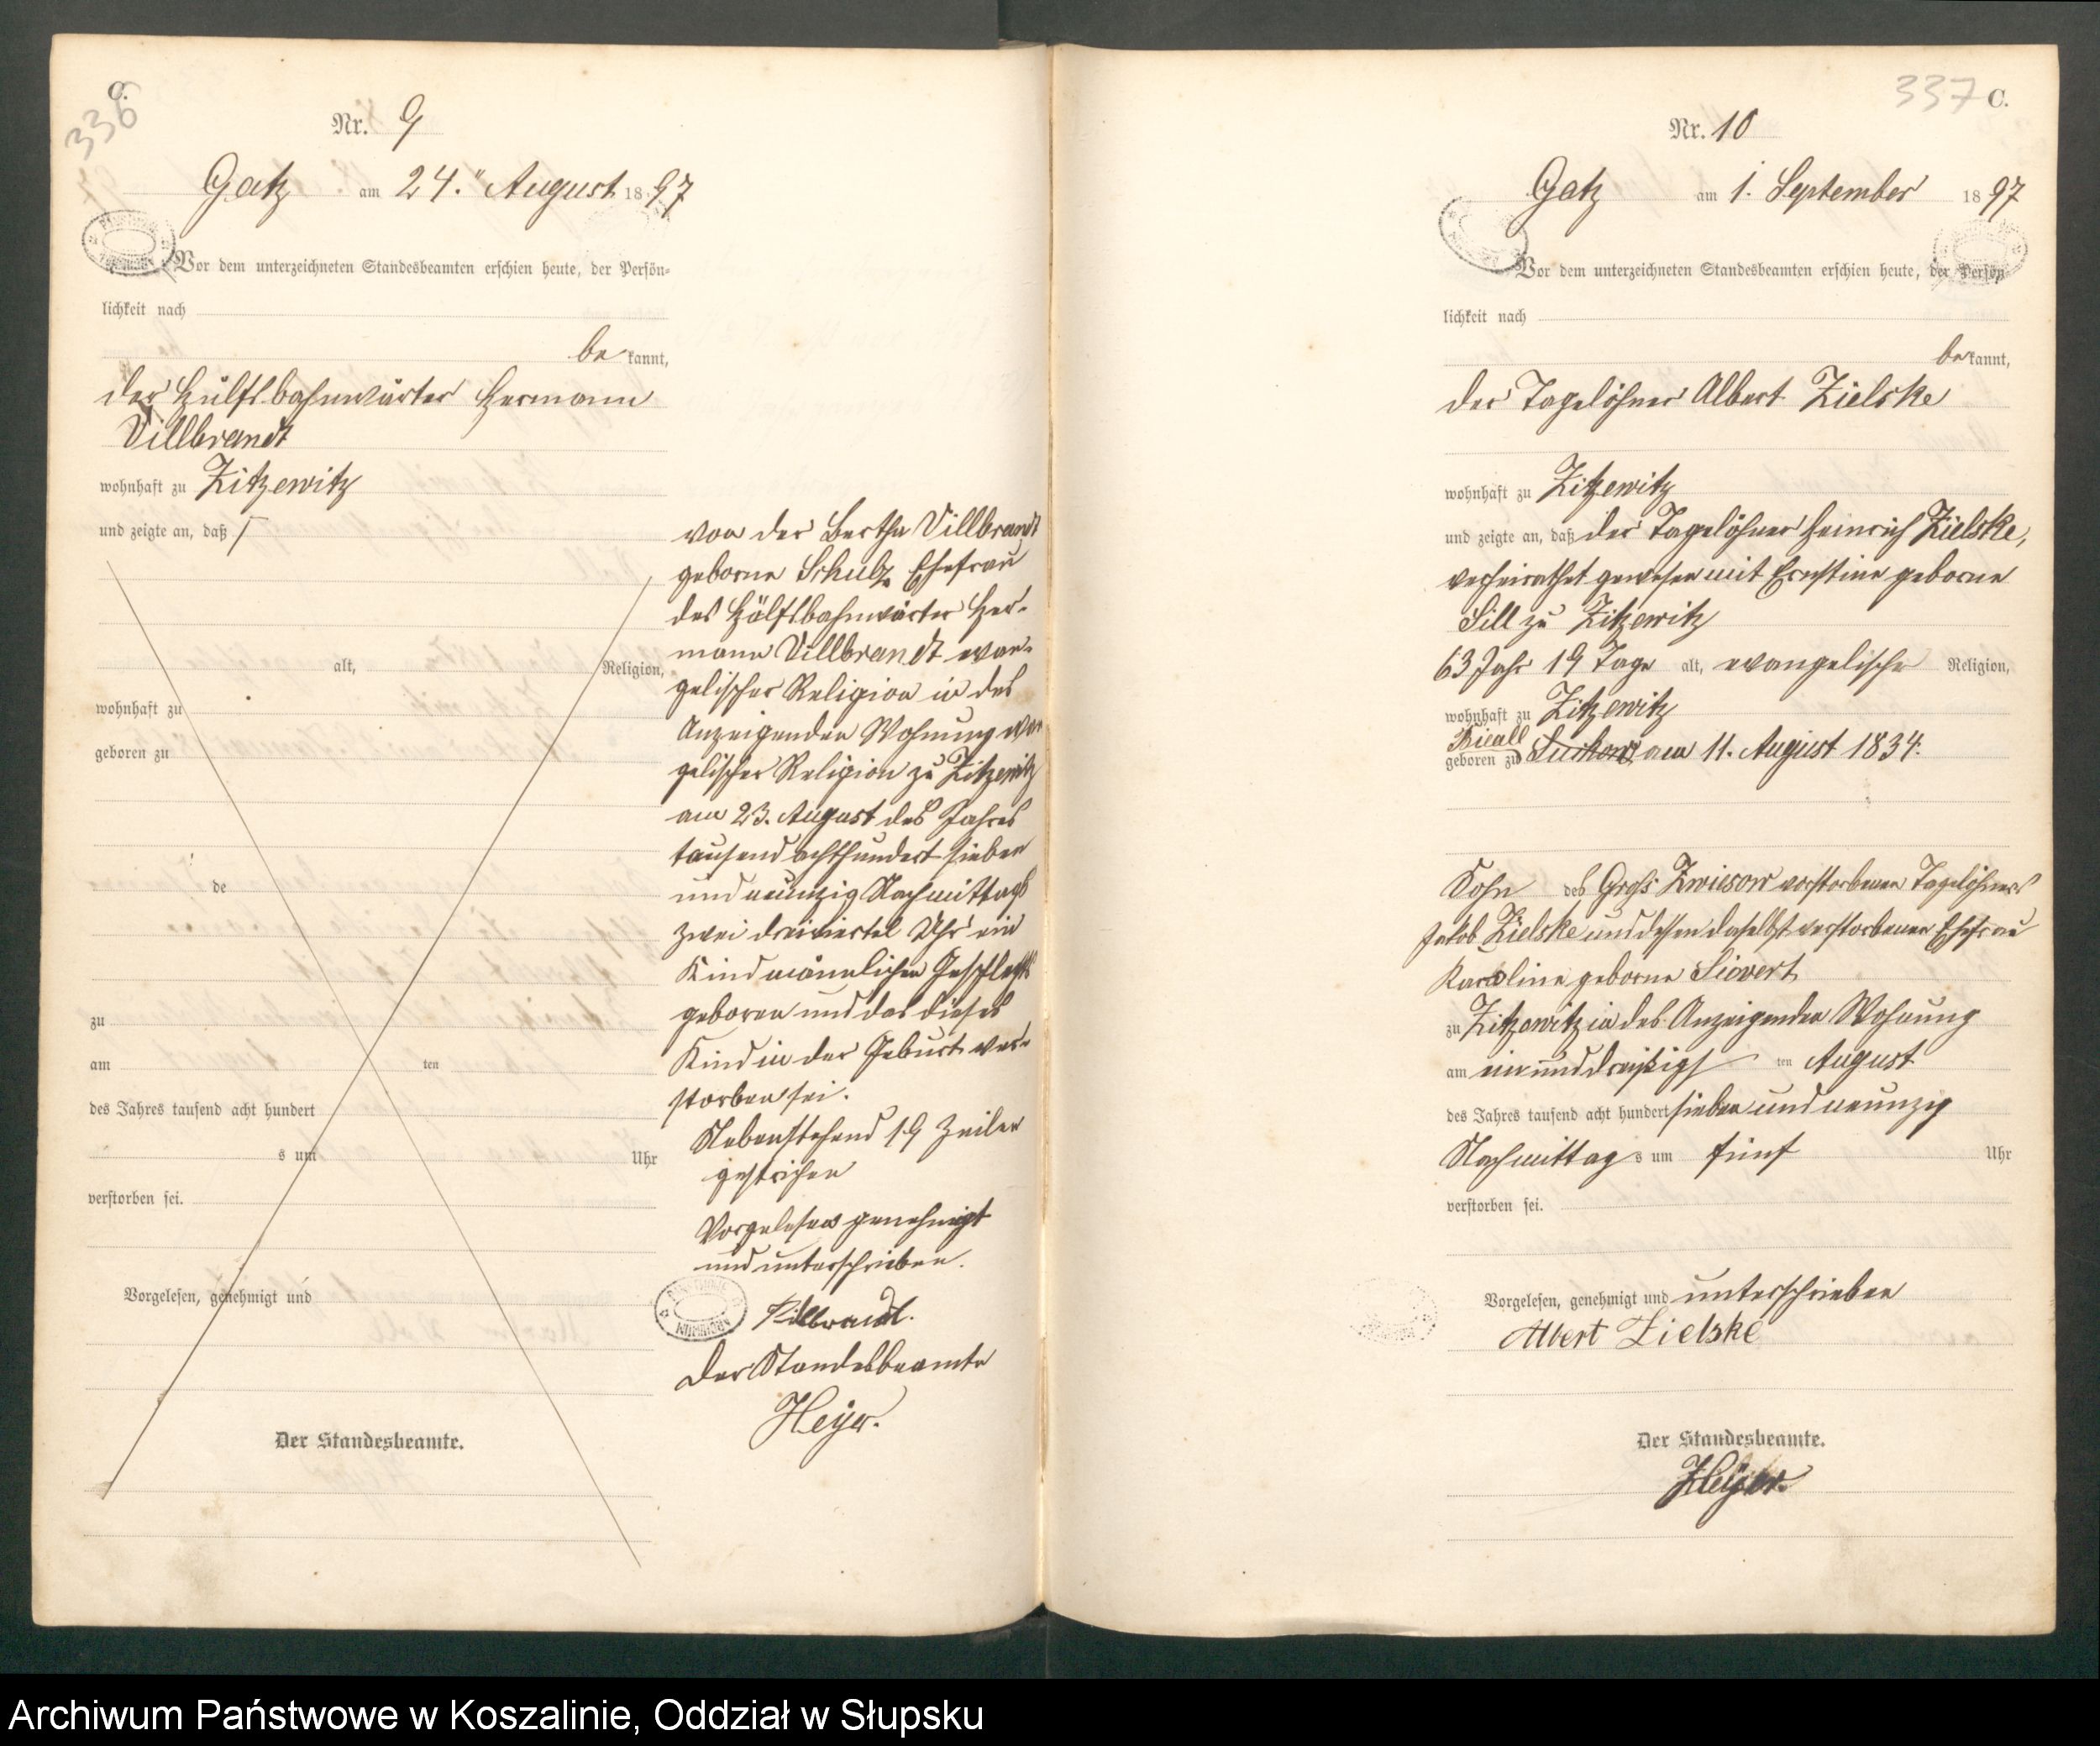 C.
336
Nr. 9
Gatz am 24. August 1897
Vor dem unterzeichneten Standesbeamten erschien heute, der Persön-
lichkeit nach
be kannt,
der Hülfsbahnwärter Hermann
Villbrandt
wohnhaft zu Zitzewitz
und zeigte an, daß
alt, Religion,
wohnhaft zu
geboren zu
de
zu
am ten
des Jahres tausend acht hundert
s um Uhr
verstorben sei.
Vorgelesen, genehmigt und
Der Standesbeamte.
von der Bertha Villbrandt
geborne Schulz Ehefrau
des Hülfsbahnwärter Her-
mann Villbrandt evan-
gelischer Religion in des
Anzeigenden Wohnung evan
gelischer Religion zu Zitzewitz
am 23. August des Jahres
tausend achthundert sieben
und neunzig Nachmittags
zwei dreiviertel Uhr ein
Kind männlichen Geschlechts
geboren und das dieses
Kind in der Geburt ver-
storben sei.
Nebenstehend 19 Zeilen
gestrichen
Vorgelesen genehmigt
und unterschrieben.
Villbrandt.
Der Standesbeamte
Heyer.
337 C.
Nr. 10
Gatz am 1. September 1897
Vor dem unterzeichneten Standesbeamten erschien heute, der Persön-
lichkeit nach
be kannt,
der Tagelöhner Albert Zielske
wohnhaft zu Zitzewitz
und zeigte an, daß der Tagelöhner Heinrich Zielske,
verheirathet gewesen mit Ernstine geborne
Sill zu Zitzewitz
63 Jahr 19 Tage alt, evangelische Religion,
wohnhaft zu Zitzewitz
geboren zu Suckow am 11. August 1834.
Sohn des Groß Zwiesow verstorbenen Tagelöhners
Jakob Zielske und dessen daselbst verstorbenen Ehefrau
Karoline geborne Sievert
zu Zitzewitz in des Anzeigenden Wohnung
am einunddreißigs ten August
des Jahres tausend acht hundert sieben und neunzig
Nachmittag s um fünf Uhr
verstorben sei.
Vorgelesen, genehmigt und unterschrieben
Albert Zielske
Der Standesbeamte.
Heyer.
Archiwum Państwowe w Koszalinie, Oddział w Słupsku